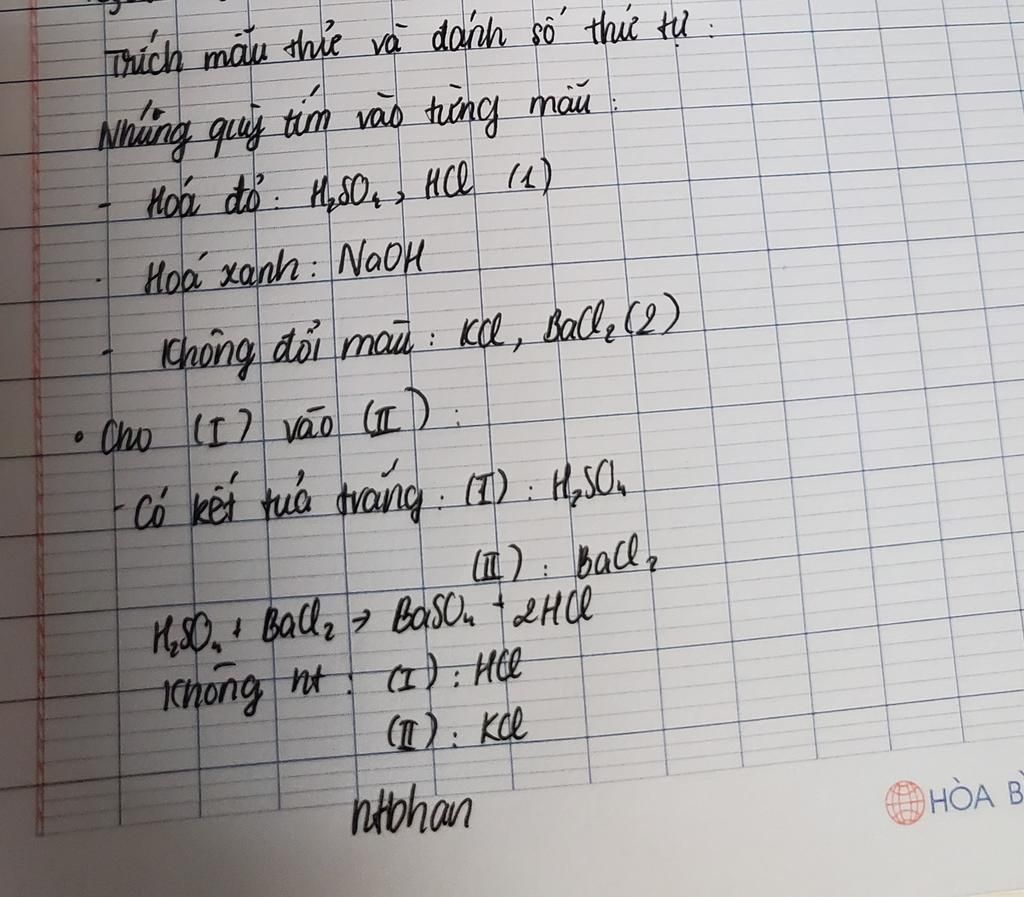 Trích mẫu thử và đánh số thứ tự :
Nhúng quỳ tím vào từng mẫu :
- Hoá đỏ : H₂SO₄, HCl (1)
- Hoá xanh : NaOH
- Không đổi màu : KCl, BaCl₂ (2)
• Cho (I) vào (II) :
- Có kết tủa trắng : (I) : H₂SO₄
(II) : BaCl₂
H₂SO₄ + BaCl₂ → BaSO₄ + 2HCl
Không ht : (I) : HCl
(II) : KCl
nthhan
HÒA B